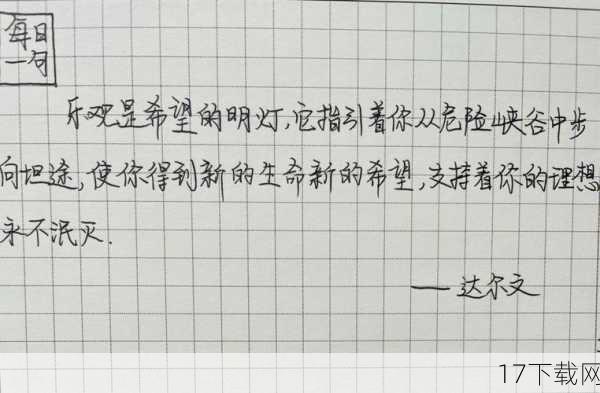 每日
一句
乐观是希望的明灯,它指引着你从危险峡谷中步
向坦途,使你得到新的生命新的希望,支持着你的理想
永不泯灭.
——达尔文
17下载网